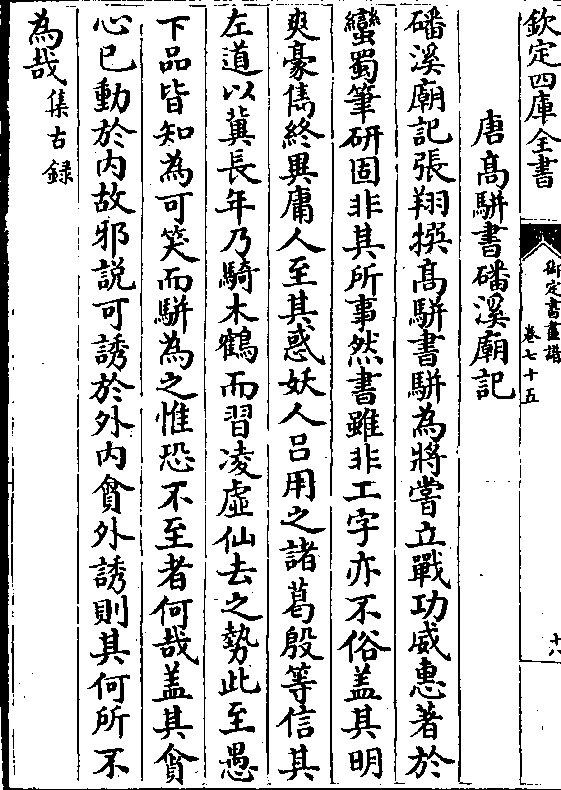 欽定四庫全書
御定書畫譜
卷七十五
十八
唐高駢書磻溪廟記
磻溪廟記張翔撰髙駢書駢為將嘗立戰功威惠著於
蠻蜀筆研固非其所事然書雖非工字亦不俗盖其明
爽豪雋終異庸人至其惑妖人吕用之諸葛殷等信其
左道以冀長年乃騎木鶴而習凌虛仙去之勢此至愚
下品皆知為可笑而駢為之惟恐不至者何哉盖其貪
心已動於内故邪説可誘於外内貪外誘則其何所不
為哉集古録